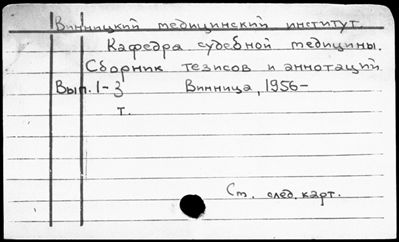 Винницкий медицинский институт
Кафедра судебной медицины.
Сборник тезисов и аннотаций
Вып. 1-3 Винница, 1956-
т.
Ст. след. карт.